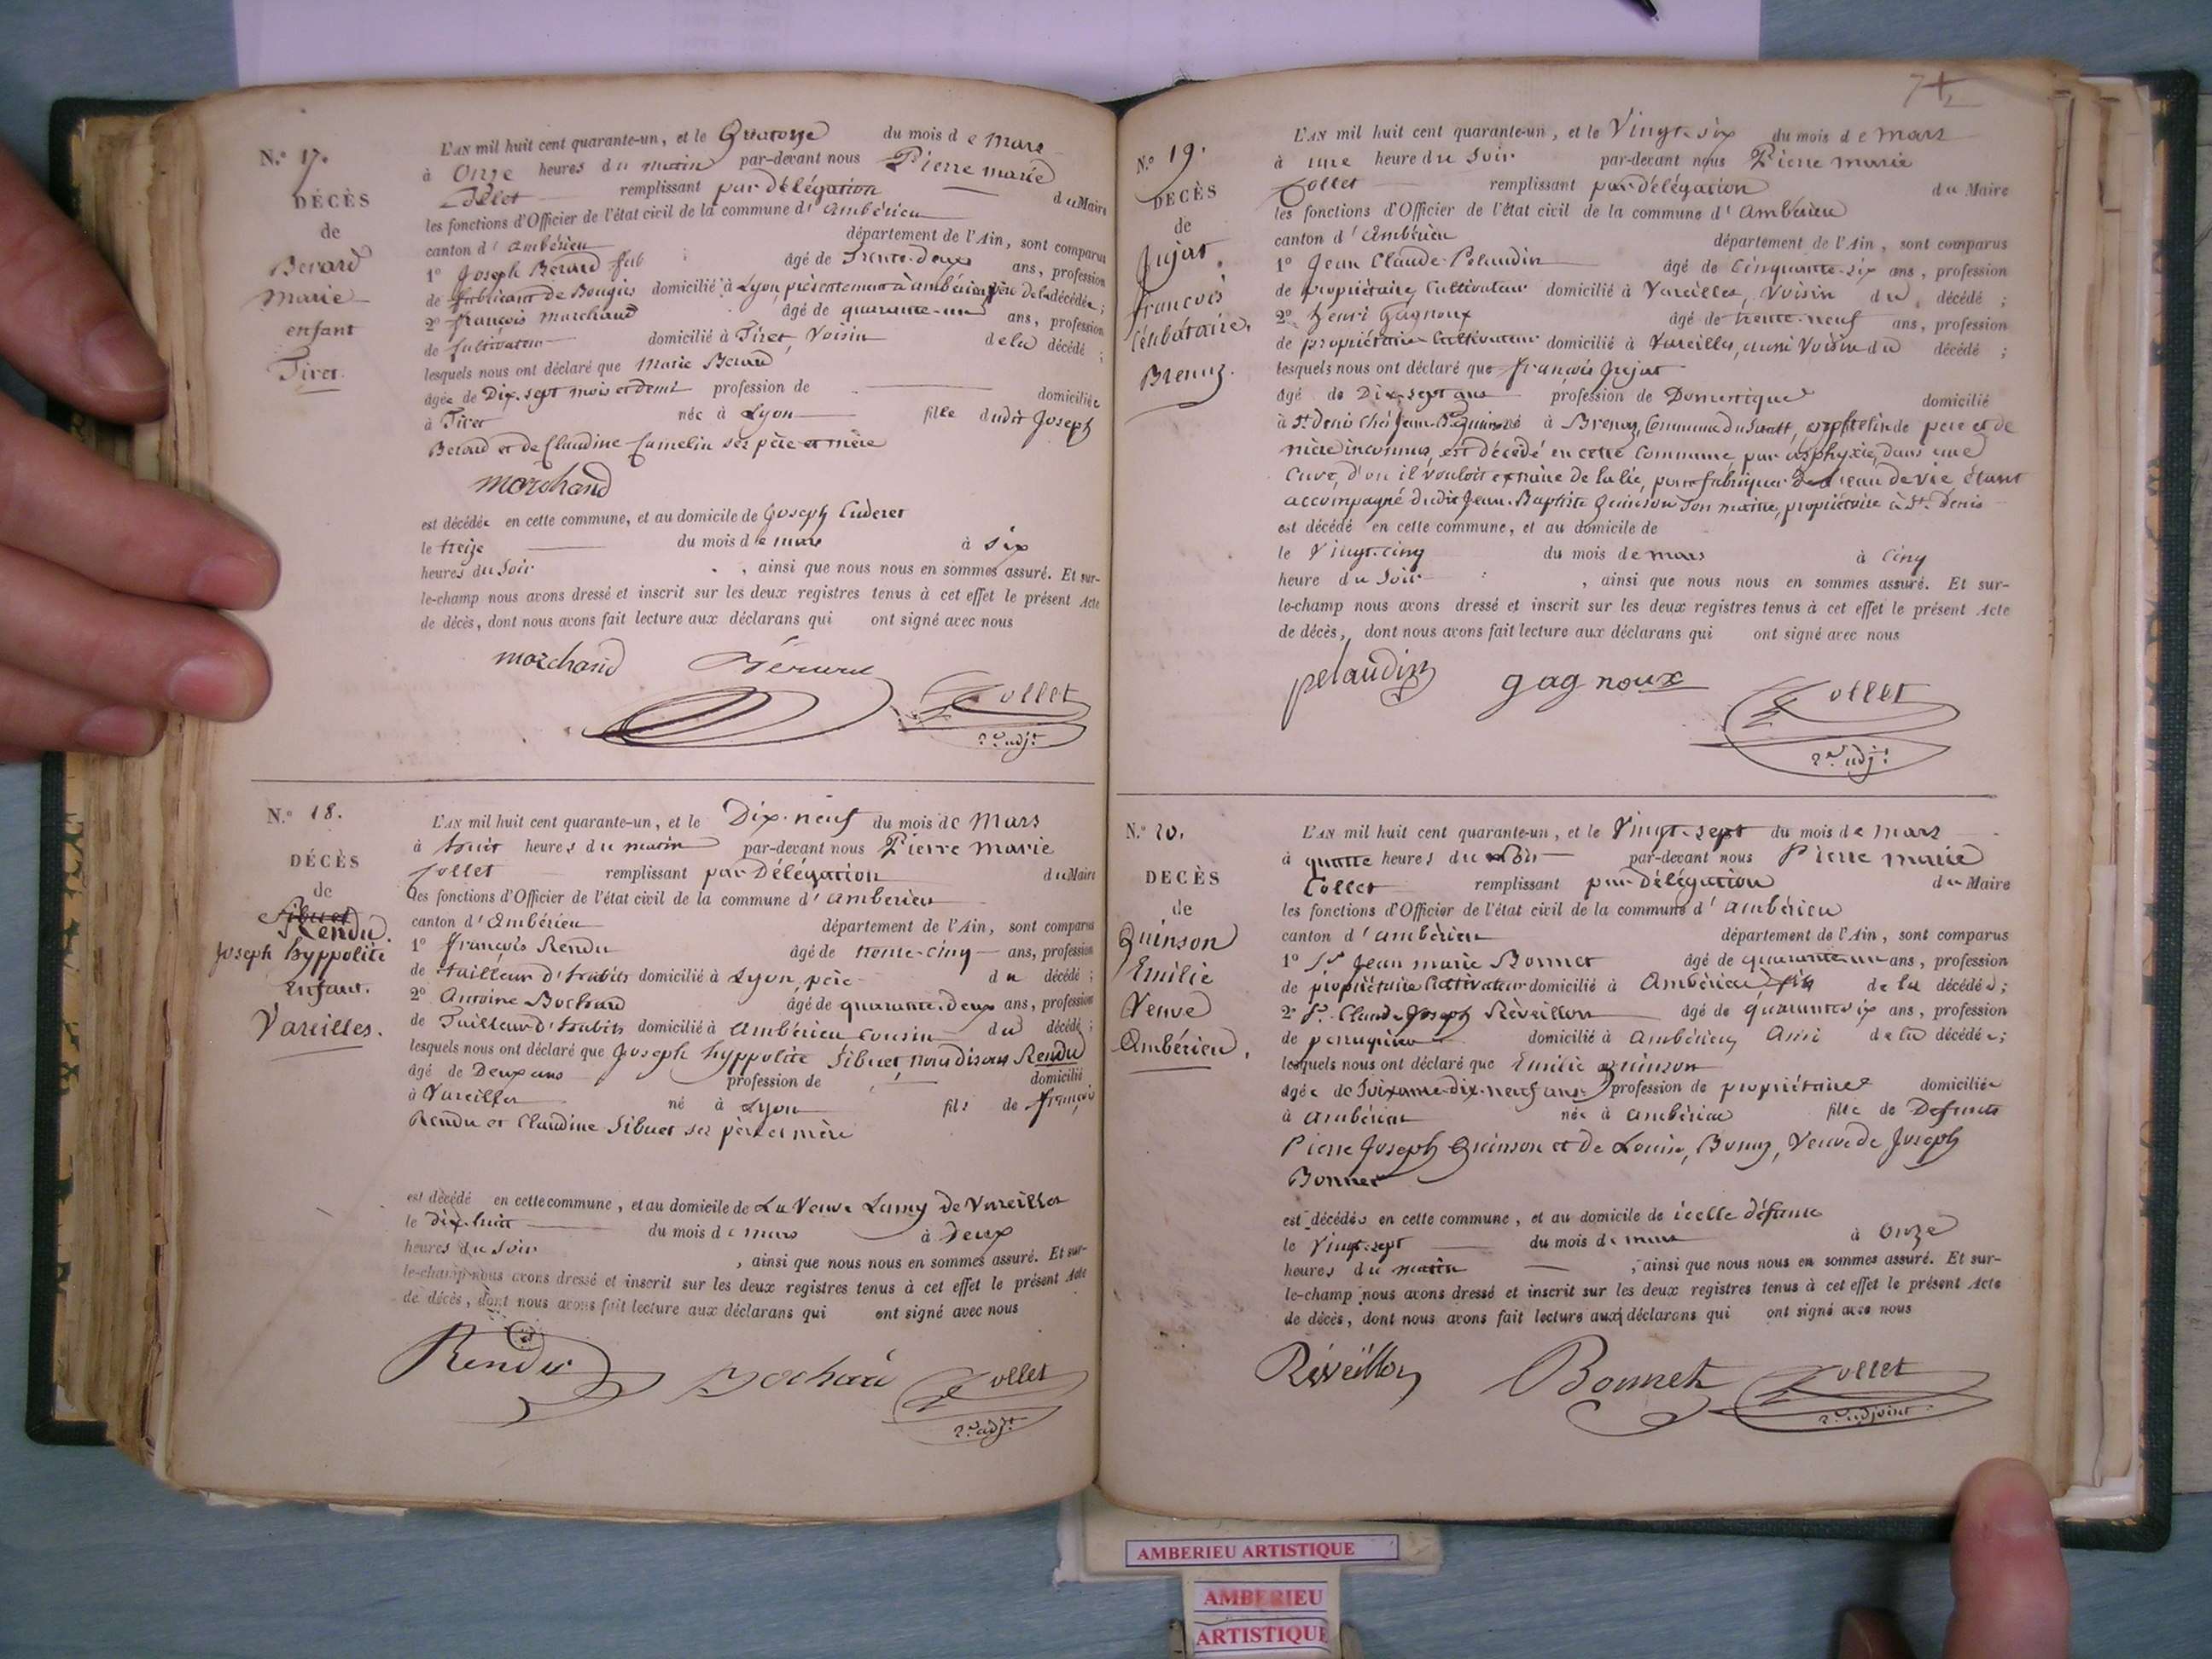 N.° 17.
DÉCÈS
de
Berard
Marie
enfant
Tiret.
L'AN mil huit cent quarante-un, et le Quatorze du mois de Mars
à Onze heures du matin par-devant nous Pierre marie
Tollet remplissant par Délégation du Maire
les fonctions d'Officier de l'état civil de la commune d'ambérieu
canton d'ambérieu département de l'Ain, sont comparus
1° Joseph Berard âgé de Trente-deux ans, profession
de fabricant de Bougies domicilié à Lyon, présentement à ambérieu père de la décédée ;
2° françois marchand âgé de quarante-un ans, profession
de Cultivateur domicilié à Tiret, Voisin de la décédé ;
lesquels nous ont déclaré que Marie Berard
âgée de Dix-sept mois et demi profession de domiciliée
à Tiret née à Lyon fille dudit Joseph
Berard et de Claudine Camelin ses père et mère
morchand
est décédée en cette commune, et au domicile de Joseph Cuderet
le treize du mois de mars à Six
heures du Soir, ainsi que nous nous en sommes assuré. Et sur-
le-champ nous avons dressé et inscrit sur les deux registres tenus à cet effet le présent Acte
de décès, dont nous avons fait lecture aux déclarans qui ont signé avec nous
morchand Bérard Tollet
2.e adj.t
N.° 18.
DÉCÈS
de
Sibuet
Rendu.
Joseph hyppolite
Enfant.
Vareilles.
L'AN mil huit cent quarante-un, et le Dix-neuf du mois de Mars
à huit heures du matin par-devant nous Pierre Marie
Tollet remplissant par Délégation du Maire
les fonctions d'Officier de l'état civil de la commune d'ambérieu
canton d'Ambérieu département de l'Ain, sont comparus
1° françois Rendu âgé de trente-cinq ans, profession
de tailleur d'habits domicilié à Lyon, père du décédé ;
2° Antoine Bochard âgé de quarante-deux ans, profession
de Tailleur d'habits domicilié à Ambérieu cousin du décédé ;
lesquels nous ont déclaré que Joseph hyppolite Sibuet, nous disons Rendu
âgé de Deux ans profession de domicilié
à Vareilles né à Lyon fils de françois
Rendu et Claudine Sibuet ses père et mère
est décédé en cette commune, et au domicile de La Veuve Lamy de Vareilles
le dix-huit du mois de mars à Deux
heures du Soir, ainsi que nous nous en sommes assuré. Et sur-
le-champ nous avons dressé et inscrit sur les deux registres tenus à cet effet le présent Acte
de décès, dont nous avons fait lecture aux déclarans qui ont signé avec nous
Rendu Bochard Tollet
2.e adj.t
7
N.° 19.
DÉCÈS
de
Jujat.
françois
Célibataire.
Brenaz.
L'AN mil huit cent quarante-un, et le Vingt-six du mois de mars
à une heure du Soir par-devant nous Pierre marie
Tollet remplissant par Délégation du Maire
les fonctions d'Officier de l'état civil de la commune d'Ambérieu
canton d'Ambérieu département de l'Ain, sont comparus
1° Jean Claude Pelaudin âgé de Cinquante-six ans, profession
de propriétaire Cultivateur domicilié à Vareilles, Voisin du décédé ;
2° henri Gagnoux âgé de trente-neuf ans, profession
de propriétaire Cultivateur domicilié à Vareilles, aussi Voisin du décédé ;
lesquels nous ont déclaré que françois Jujat
âgé de Dix-sept ans profession de Domestique domicilié
à St Denis Chés Jean B.te Quinson né à Brenaz, Commune du orphelin de père et de
mère inconnus, est décédé en cette Commune par asphyxie, dans une
Cuve, d'où il vouloit extraire de la lie, pour fabriquer de l'eau de vie étant
accompagné dudit Jean-Baptiste Quinson Son maitre, propriétaire à St Denis
est décédé en cette commune, et au domicile de
le Vingt-cinq du mois de mars à Cinq
heure du Soir, ainsi que nous nous en sommes assuré. Et sur-
le-champ nous avons dressé et inscrit sur les deux registres tenus à cet effet le présent Acte
de décès, dont nous avons fait lecture aux déclarans qui ont signé avec nous
pelaudin gagnoux Tollet
2.e adj.t
N.° 20.
DÉCÈS
de
Quinson
Emilie
Veuve
Ambérieu.
L'AN mil huit cent quarante-un, et le Vingt-sept du mois de mars
à quatre heures du Soir par-devant nous Pierre marie
Tollet remplissant par Délégation du Maire
les fonctions d'Officier de l'état civil de la commune d'ambérieu
canton d'ambérieu département de l'Ain, sont comparus
1° Sr Jean marie Bonnet âgé de quarante-un ans, profession
de propriétaire Cultivateur domicilié à Ambérieu, fils de la décédée ;
2° Sr Claude Joseph Réveillon âgé de quarante six ans, profession
de perruquier domicilié à ambérieu, Ami de la décédée ;
lesquels nous ont déclaré que Emilie quinson
âgée de Soixante-dix-neuf ans profession de propriétaire domiciliée
à ambérieu née à ambérieu fille de Defunts
Pierre Joseph Quinson et de Louise, Veuve de Joseph
Bonnet
est décédée en cette commune, et au domicile de icelle défunte
le Vingt-sept du mois de mars à Onze
heures du matin, ainsi que nous nous en sommes assuré. Et sur-
le-champ nous avons dressé et inscrit sur les deux registres tenus à cet effet le présent Acte
de décès, dont nous avons fait lecture aux déclarans qui ont signé avec nous
Réveillon Bonnet Tollet
2.e adjoint
AMBERIEU ARTISTIQUE
AMBERIEU
ARTISTIQUE